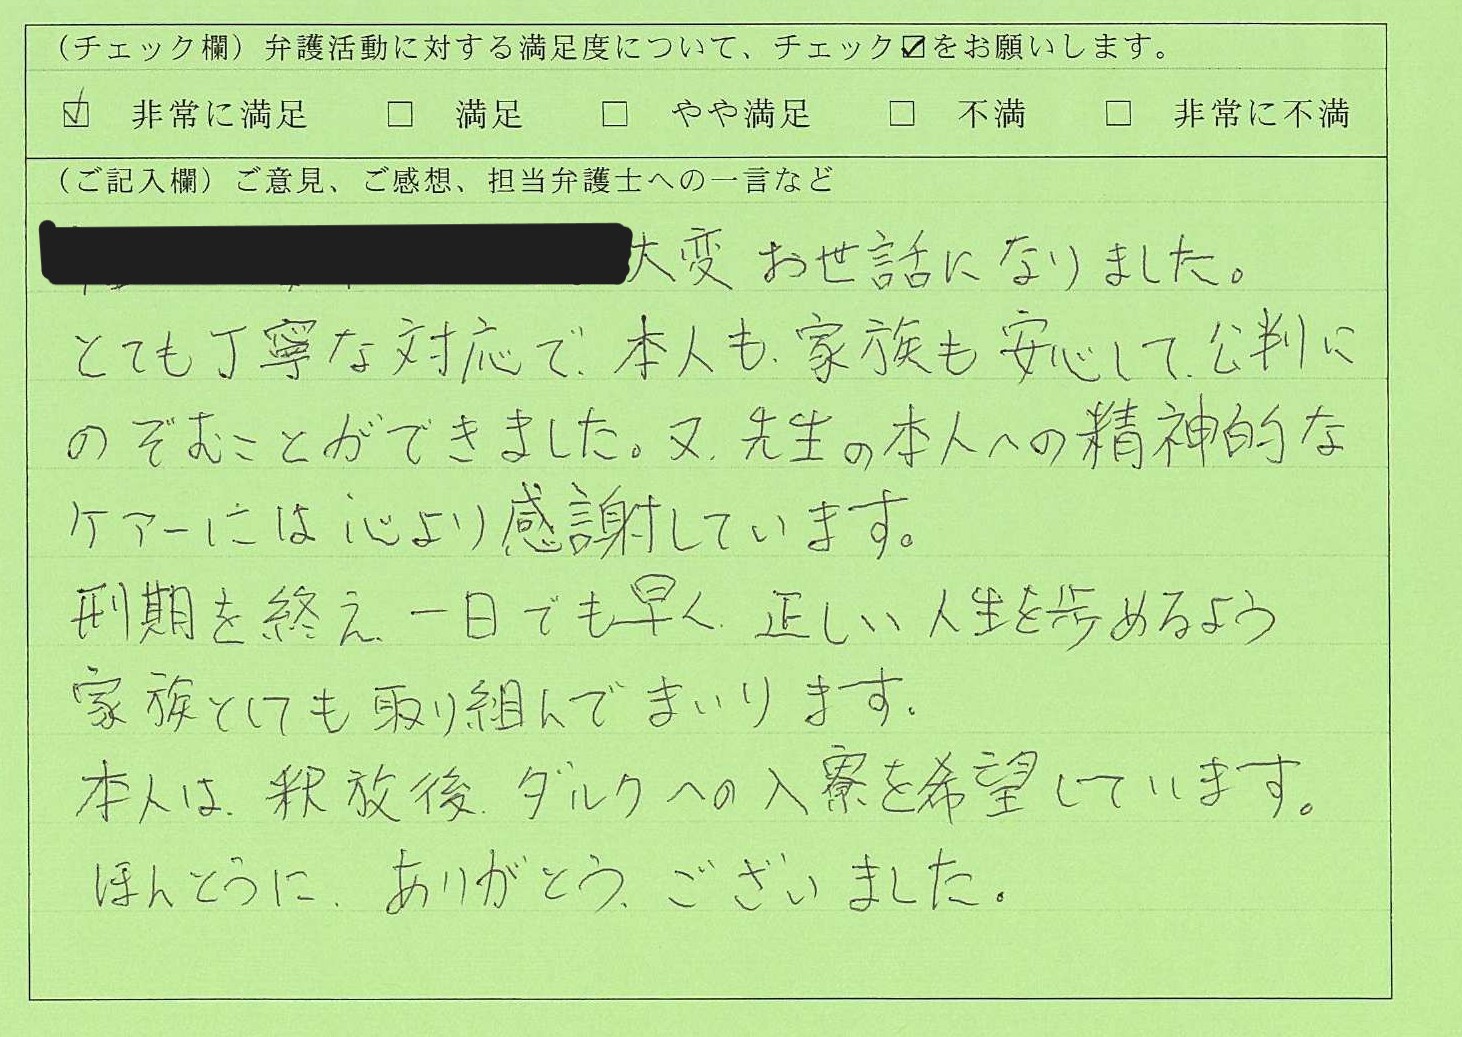 （チェック欄）弁護活動に対する満足度について、チェック☑をお願いします。
☑ 非常に満足 □ 満足 □ やや満足 □ 不満 □ 非常に不満
（ご記入欄）ご意見、ご感想、担当弁護士への一言など
大変お世話になりました。
とても丁寧な対応で、本人も、家族も安心して、公判に
のぞむことができました。又、先生の本人への精神的な
ケアーには心より感謝しています。
刑期を終え、一日でも早く、正しい人生を歩めるよう
家族としても取り組んでまいります。
本人は、釈放後、ダルクへの入寮を希望しています。
ほんとうに、ありがとう、ございました。